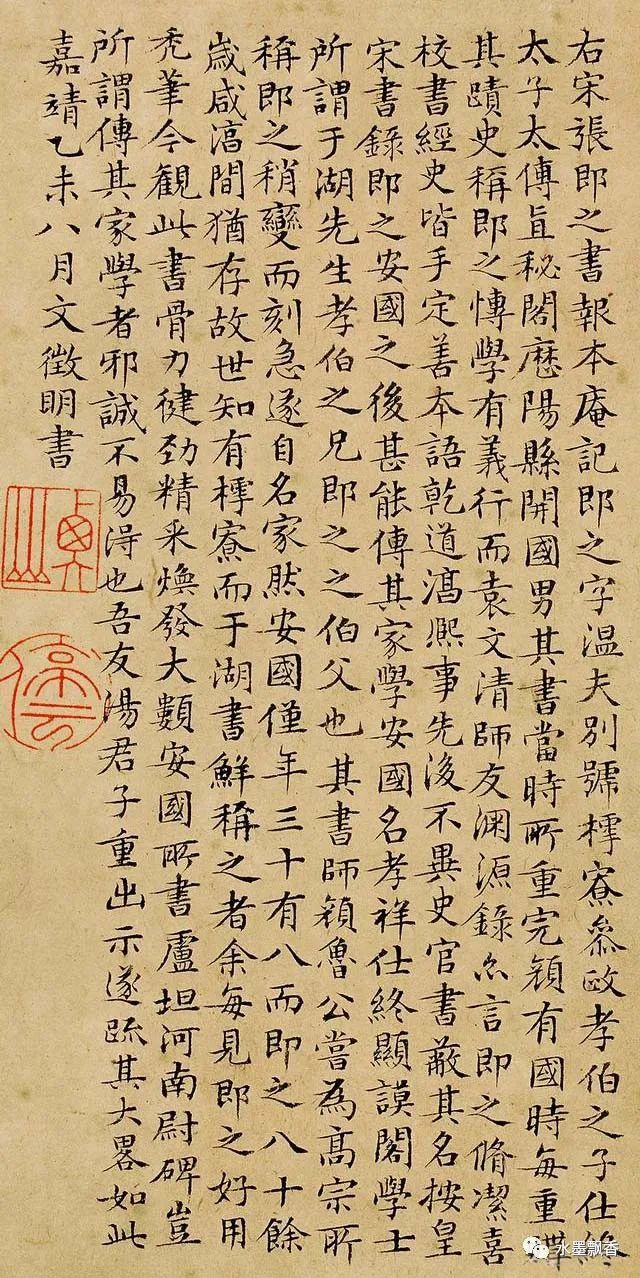 右宋張即之書報本庵記即之字溫夫別號樗寮叅政孝伯之子仕終
太子太傅直秘閣歷陽縣開國男其書當時所重完顏有國時每重購
其蹟史稱即之博學有義行而袁文清師友渊源錄亦言即之脩潔喜
校書經史皆手定善本語乾道淳熙事先後不異史官書蔽其名按皇
宋書錄即之安國之後甚能傳其家學安國名孝祥仕終顯謨閣學士
所謂于湖先生孝伯之兄即之之伯父也其書師顏魯公嘗為髙宗所
稱即之稍變而刻急遂自名家然安國僅年三十有八而即之八十餘
歲咸淳間猶存故世知有樗寮而于湖書鮮稱之者余每見即之好用
禿筆今觀此書骨力健勁精采煥發大類安國所書盧坦河南尉碑豈
所謂傳其家學者邪誠不易得也吾友湯君子重出示遂疏其大畧如此
嘉靖乙未八月文徵明書
水墨飘香